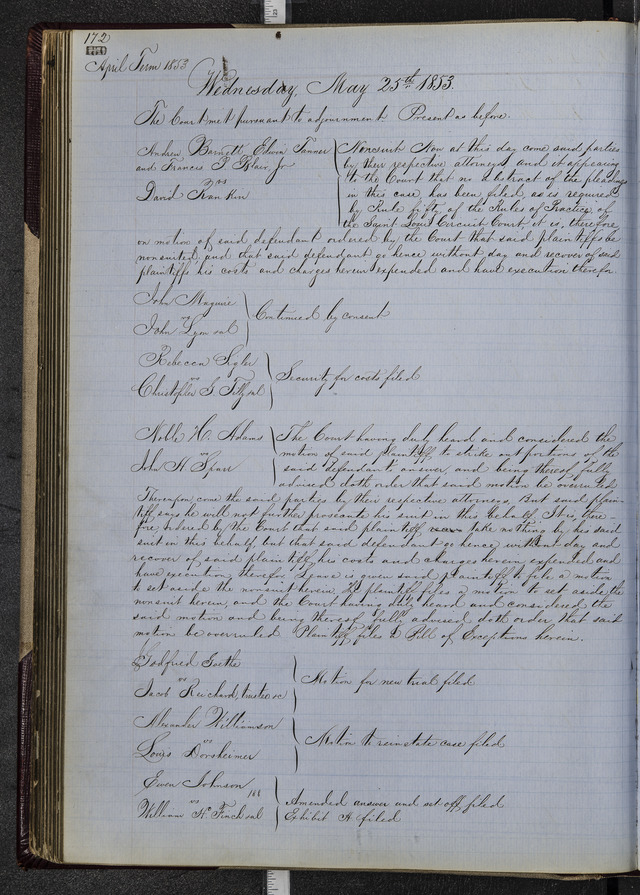 172
April Term 1853
Wednesday, May 25th 1853.
The Court met pursuant to adjournment Present as before.
Andrew Barnett, Edwin Tanner
and Francis P. Blair Jr
vs
David Rankin
Nonsuit Now at this day come said parties
by their respective attorneys and it appearing
to the Court that no abstract of the pleadings
in this case, has been filed, as is required
by Rule fifty of the Rules of Practice of
the Saint Louis Circuit Court, it is, therefore
on motion of said defendant ordered by the Court that said plaintiffs be
nonsuited, and that said defendant go hence without day and recover of said
plaintiffs his costs and charges herein expended and have execution therefor
John Maguire
vs
John Lyon et al
Continued by consent
Rebecca
vs
Christopher S et al
Security for costs filed
Noble H. Adams
vs
John H Sparr
The Court having duly heard and considered the
motion of said plaintiff, to strike out portions of the
said defendants answer, and being thereof fully
advised doth order that said motion be overruled
Thereupon come the said parties by their respective attorneys. But said plain-
tiff says he will not further prosecute his suit in this behalf. It is, there-
fore, ordered by the Court that said plaintiff take nothing by his said
suit in this behalf but that said defendant go hence without day and
recover of said plaintiff his costs and charges herein expended and
have execution therefor. Leave is given said plaintiff to file a motion
to set aside the nonsuit herein. plaintiff files a motion to set aside the
nonsuit herein, and the Court having duly heard and considered the
said motion and being thereof fully advised doth order that said
motion be overruled Plaintiff files Bill of Exceptions herein.
Godfried Goethe
vs
Jacob Reichard, trustee &c
Motion for new trial filed
Alexander Williamson
vs
Louis Dorsheimer
Motion to reinstate case filed
Ewen Johnson
vs
William H. Finch et al
Amended answer and set off filed
Exhibit A filed